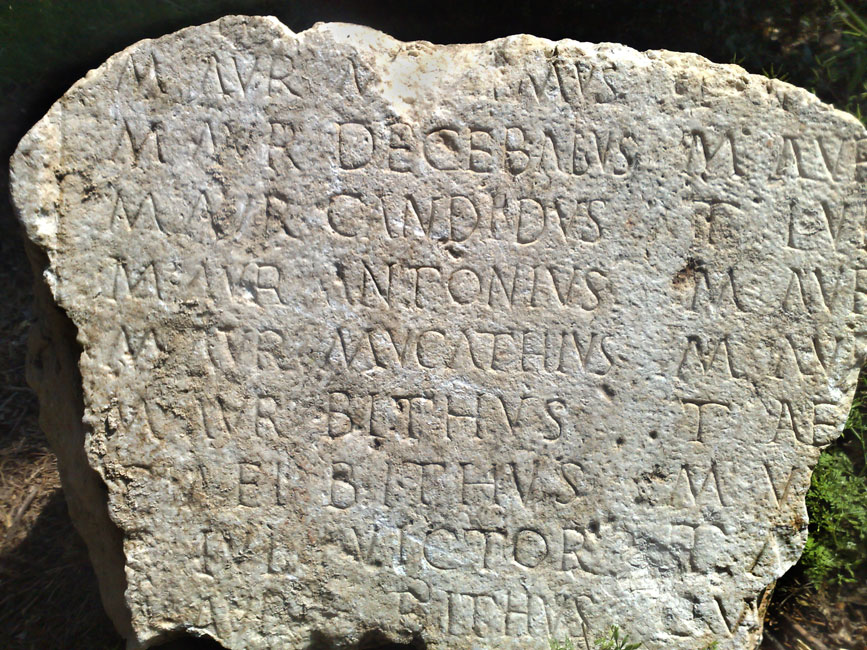 M AVR MVS
M AVR DECEBALVS M AVR
M AVR CANDIDVS T
M AVR ANTONIVS M AVR
M AVR MVCATHIVS M AV
M AVR BITHVS T AE
AEL BITHVS M V
IVL VICTOR T
AVR BITHVS